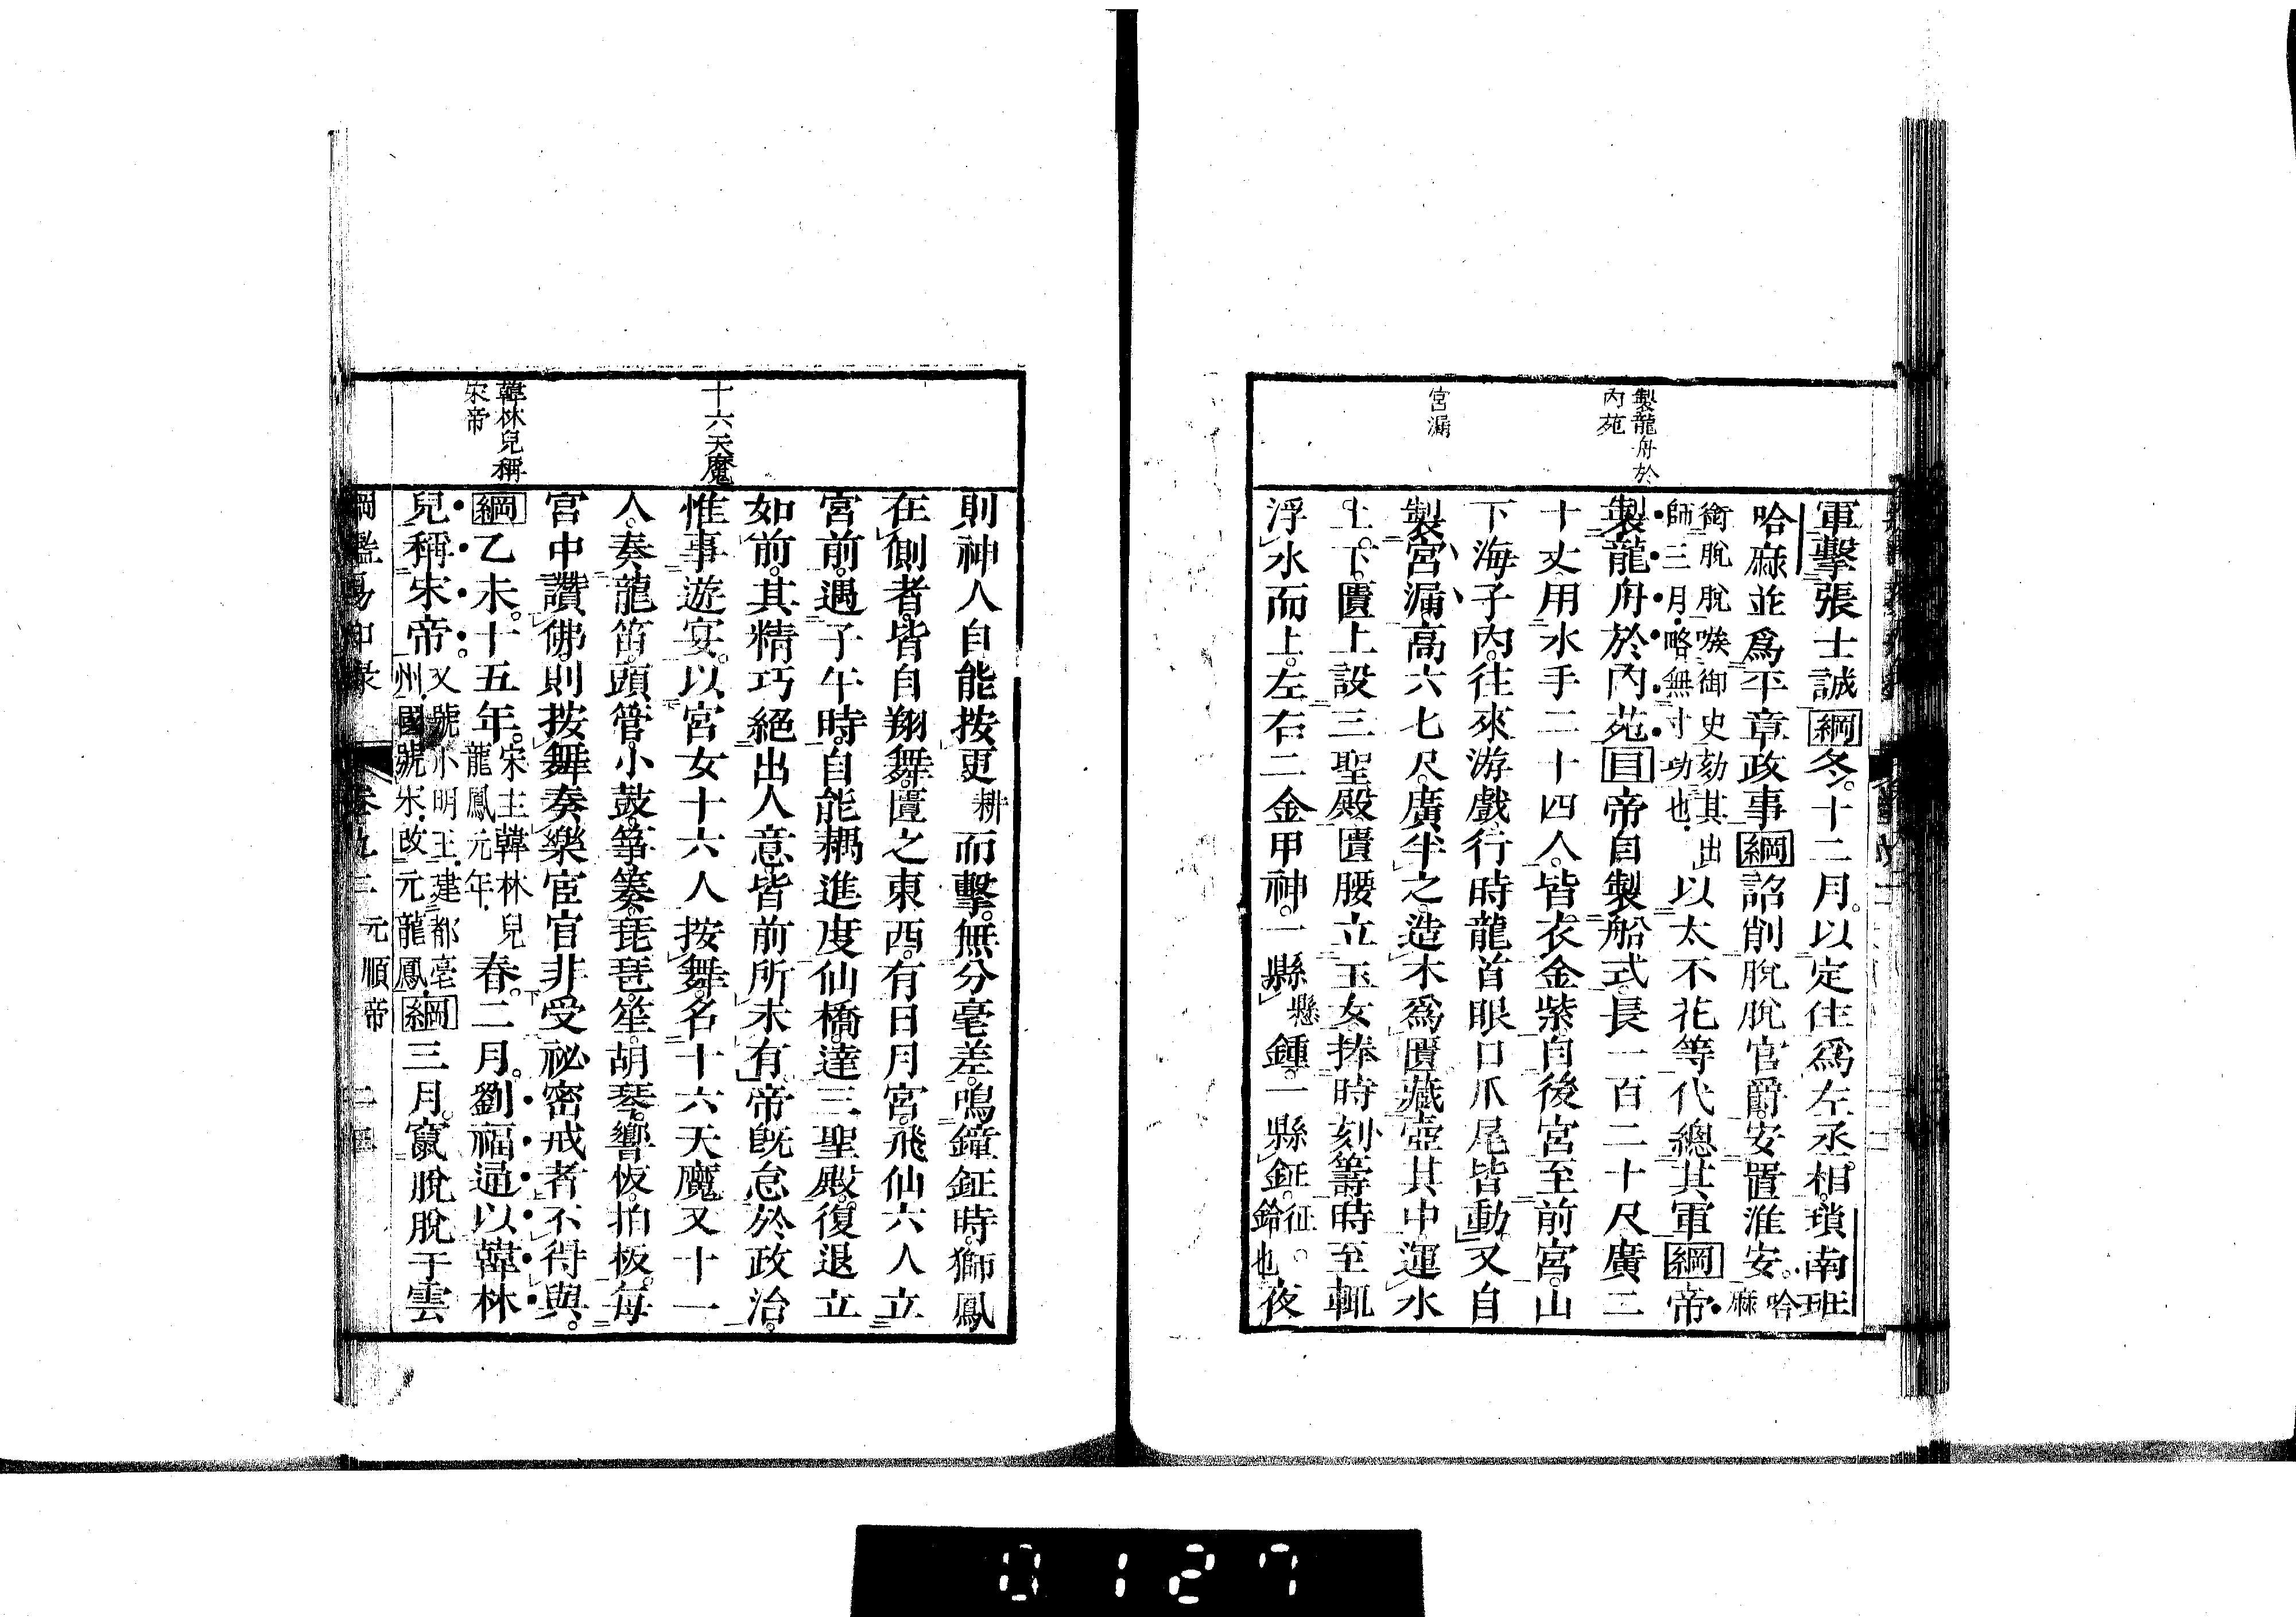 製龍舟於
內苑
宮漏
軍擊張士誠綱冬。十二月。以定住爲左丞相。瑣南班
哈麻並爲平章政事綱詔削脫脫官爵。安置淮安。哈麻
銜脫脫嗾御史劾其出師三月略無寸功也以太不花等代總其軍綱帝
製龍舟於內苑目帝自製船式長一百二十尺廣二
十丈用水手二十四人。皆衣金紫。自後宮至前宮。山
下海子內。往來游戲行時龍首眼口爪尾皆動又自
製宮漏高六七尺。廣半之。造木爲匱藏壺其中運水
上。下。匱上設三聖殿匱腰立玉女捧時刻籌時至輒
浮水而上。左右二金甲神。一縣懸鍾。一縣鉦。征。鈴也夜
十六天魔
韓林兒稱
宋帝
則神人自能按更耕而擊。無分毫差。鳴鐘鉦時。獅鳳
在側者。皆自翔舞。匱之東西。有日月宮。飛仙六人立
宮前。遇子午時。自能耦進度仙橋。達三聖殿。復退立
如前。其精巧絕出人意。皆前所未有帝旣怠於政治。
惟事遊宴。以宮女十六人按舞。名十六天魔又十一
人。奏龍笛。頭管。小鼓。箏。䇟。琵琶笙。胡琴。響板。拍板。每
宮中讚佛。則按舞奏樂宦官非受祕密戒者不得與。
綱乙未。十五年。宋主韓林兒龍鳳元年春。二月。劉福通以韓林
兒稱宋帝。又號小明王建都亳州國號宋改元龍鳳綱三月。竄脫脫于雲
元順帝
0127